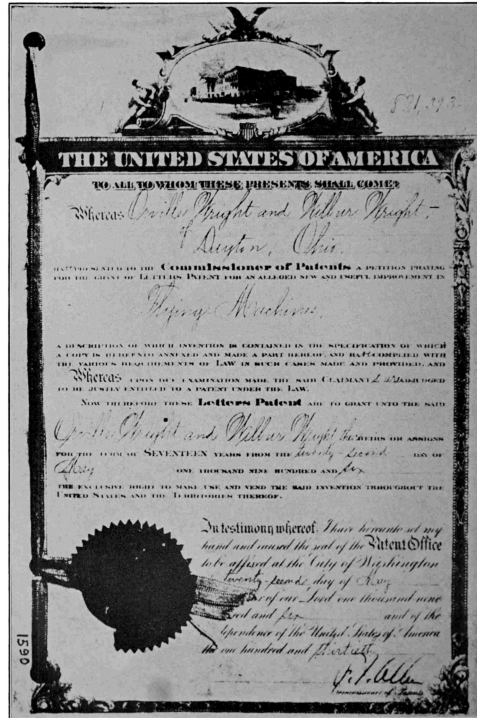 821,393
THE UNITED STATES OF AMERICA
TO ALL TO WHOM THESE PRESENTS SHALL COME:
Whereas Orville Wright and Wilbur Wright,
of Dayton, Ohio,
PRESENTED TO THE Commissioner of Patents A PETITION PRAYING
FOR THE GRANT OF LETTERS PATENT FOR AN ALLEGED NEW AND USEFUL IMPROVEMENT IN
Flying Machines,
A DESCRIPTION OF WHICH INVENTION IS CONTAINED IN THE SPECIFICATION OF WHICH
A COPY IS HEREUNTO ANNEXED AND MADE A PART HEREOF, AND HAVE COMPLIED WITH
THE VARIOUS REQUIREMENTS OF LAW IN SUCH CASES MADE AND PROVIDED, AND
Whereas UPON DUE EXAMINATION MADE THE SAID CLAIMANTS ADJUDGED
TO BE JUSTLY ENTITLED TO A PATENT UNDER THE LAW.
NOW THEREFORE THESE Letters Patent ARE TO GRANT UNTO THE SAID
Orville Wright and Wilbur Wright, their HEIRS OR ASSIGNS
FOR THE TERM OF SEVENTEEN YEARS FROM THE twenty-second DAY OF
May ONE THOUSAND NINE HUNDRED AND six
THE EXCLUSIVE RIGHT TO MAKE USE AND VEND THE SAID INVENTION THROUGHOUT THE
UNITED STATES AND THE TERRITORIES THEREOF.
In testimony whereof, I have hereunto set my
hand and caused the seal of the Patent Office
to be affixed at the City of Washington
twenty-second day of May
of our Lord one thousand nine
and six and of the
of the United States of America
the one hundred and thirtieth.
F. I. Allen
Commissioner of Patents
1590